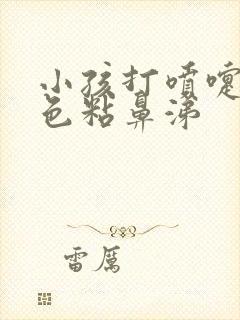 小孩打喷嚏
色粘鼻涕
雷厉